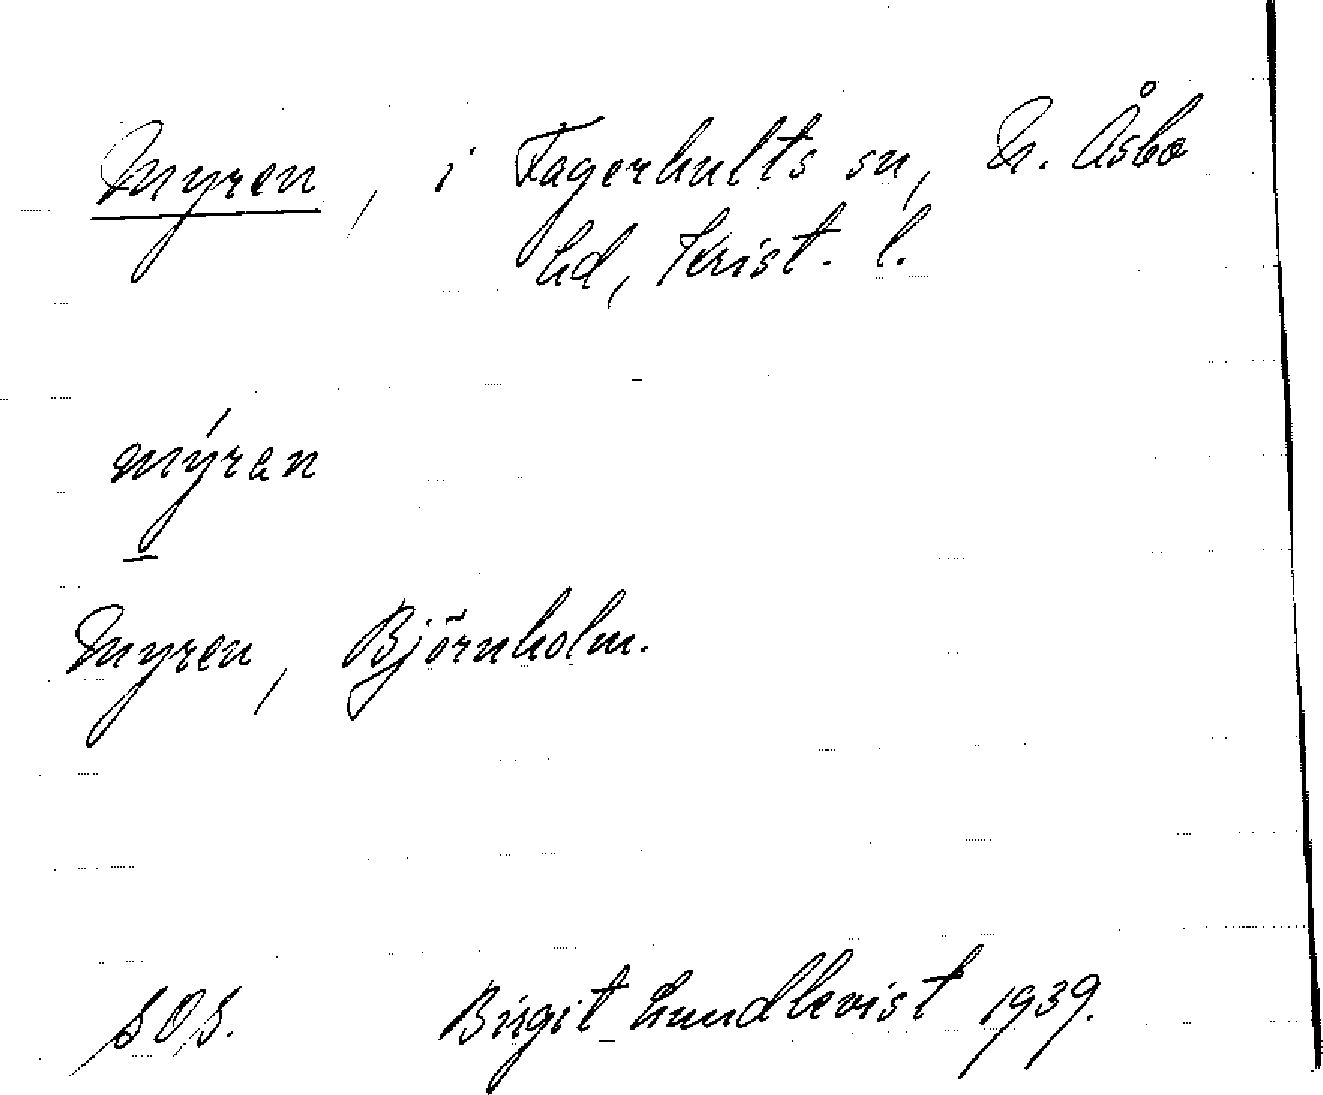 Myren, i Fagerhults sn, N. Åsbo
hd, Krist. l.
mýran
Myren, Björnholm.
SOS. Birgit Lundkvist 1939.